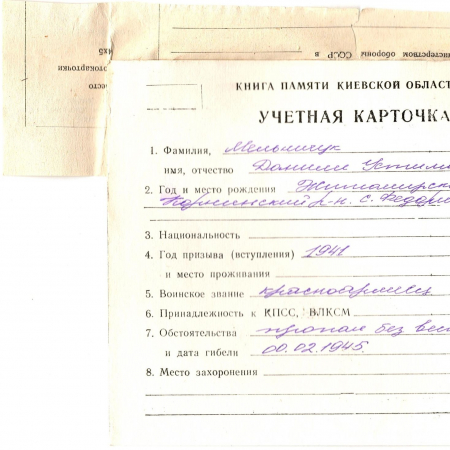 министерством обороны СССР в
4х5
фотокарточки
место
КНИГА ПАМЯТИ КИЕВСКОЙ ОБЛАС
УЧЕТНАЯ КАРТОЧКА
1. Фамилия, Мельничук
имя, отчество Данилл Устим
2. Год и место рождения Житомирск
р-н. с. Федор
3. Национальность
4. Год призыва (вступления) 1941
и место проживания
5. Воинское звание красноармеец
6. Принадлежность к КПСС, ВЛКСМ
7. Обстоятельства пропал без вес
и дата гибели 00.02.1945.
8. Место захоронения